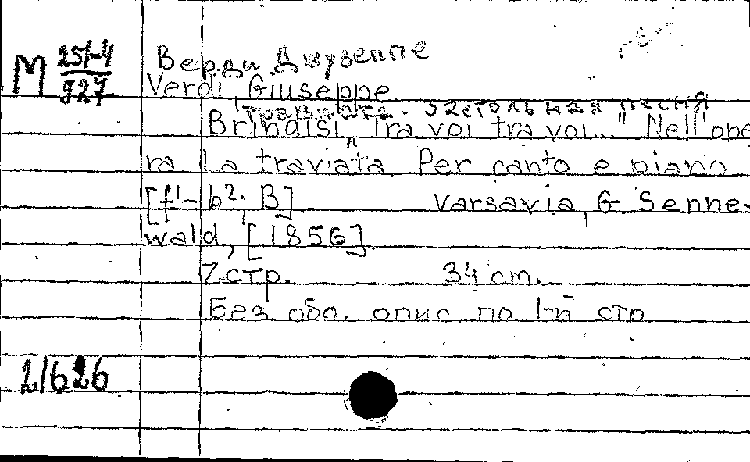 М 251-4
927
Верди Джузеппе
Verdi, Giuseppe
Травиата. Застольная песня
Brindisi „Tra voi tra voi..." Nell'ope-
ra La traviata. Per canto e piano
[f¹-b²; B] Varsavia, G Senne-
wald, [1856]
7 стр. 34 cm.
Без обл. опис по 1-й стр
21626